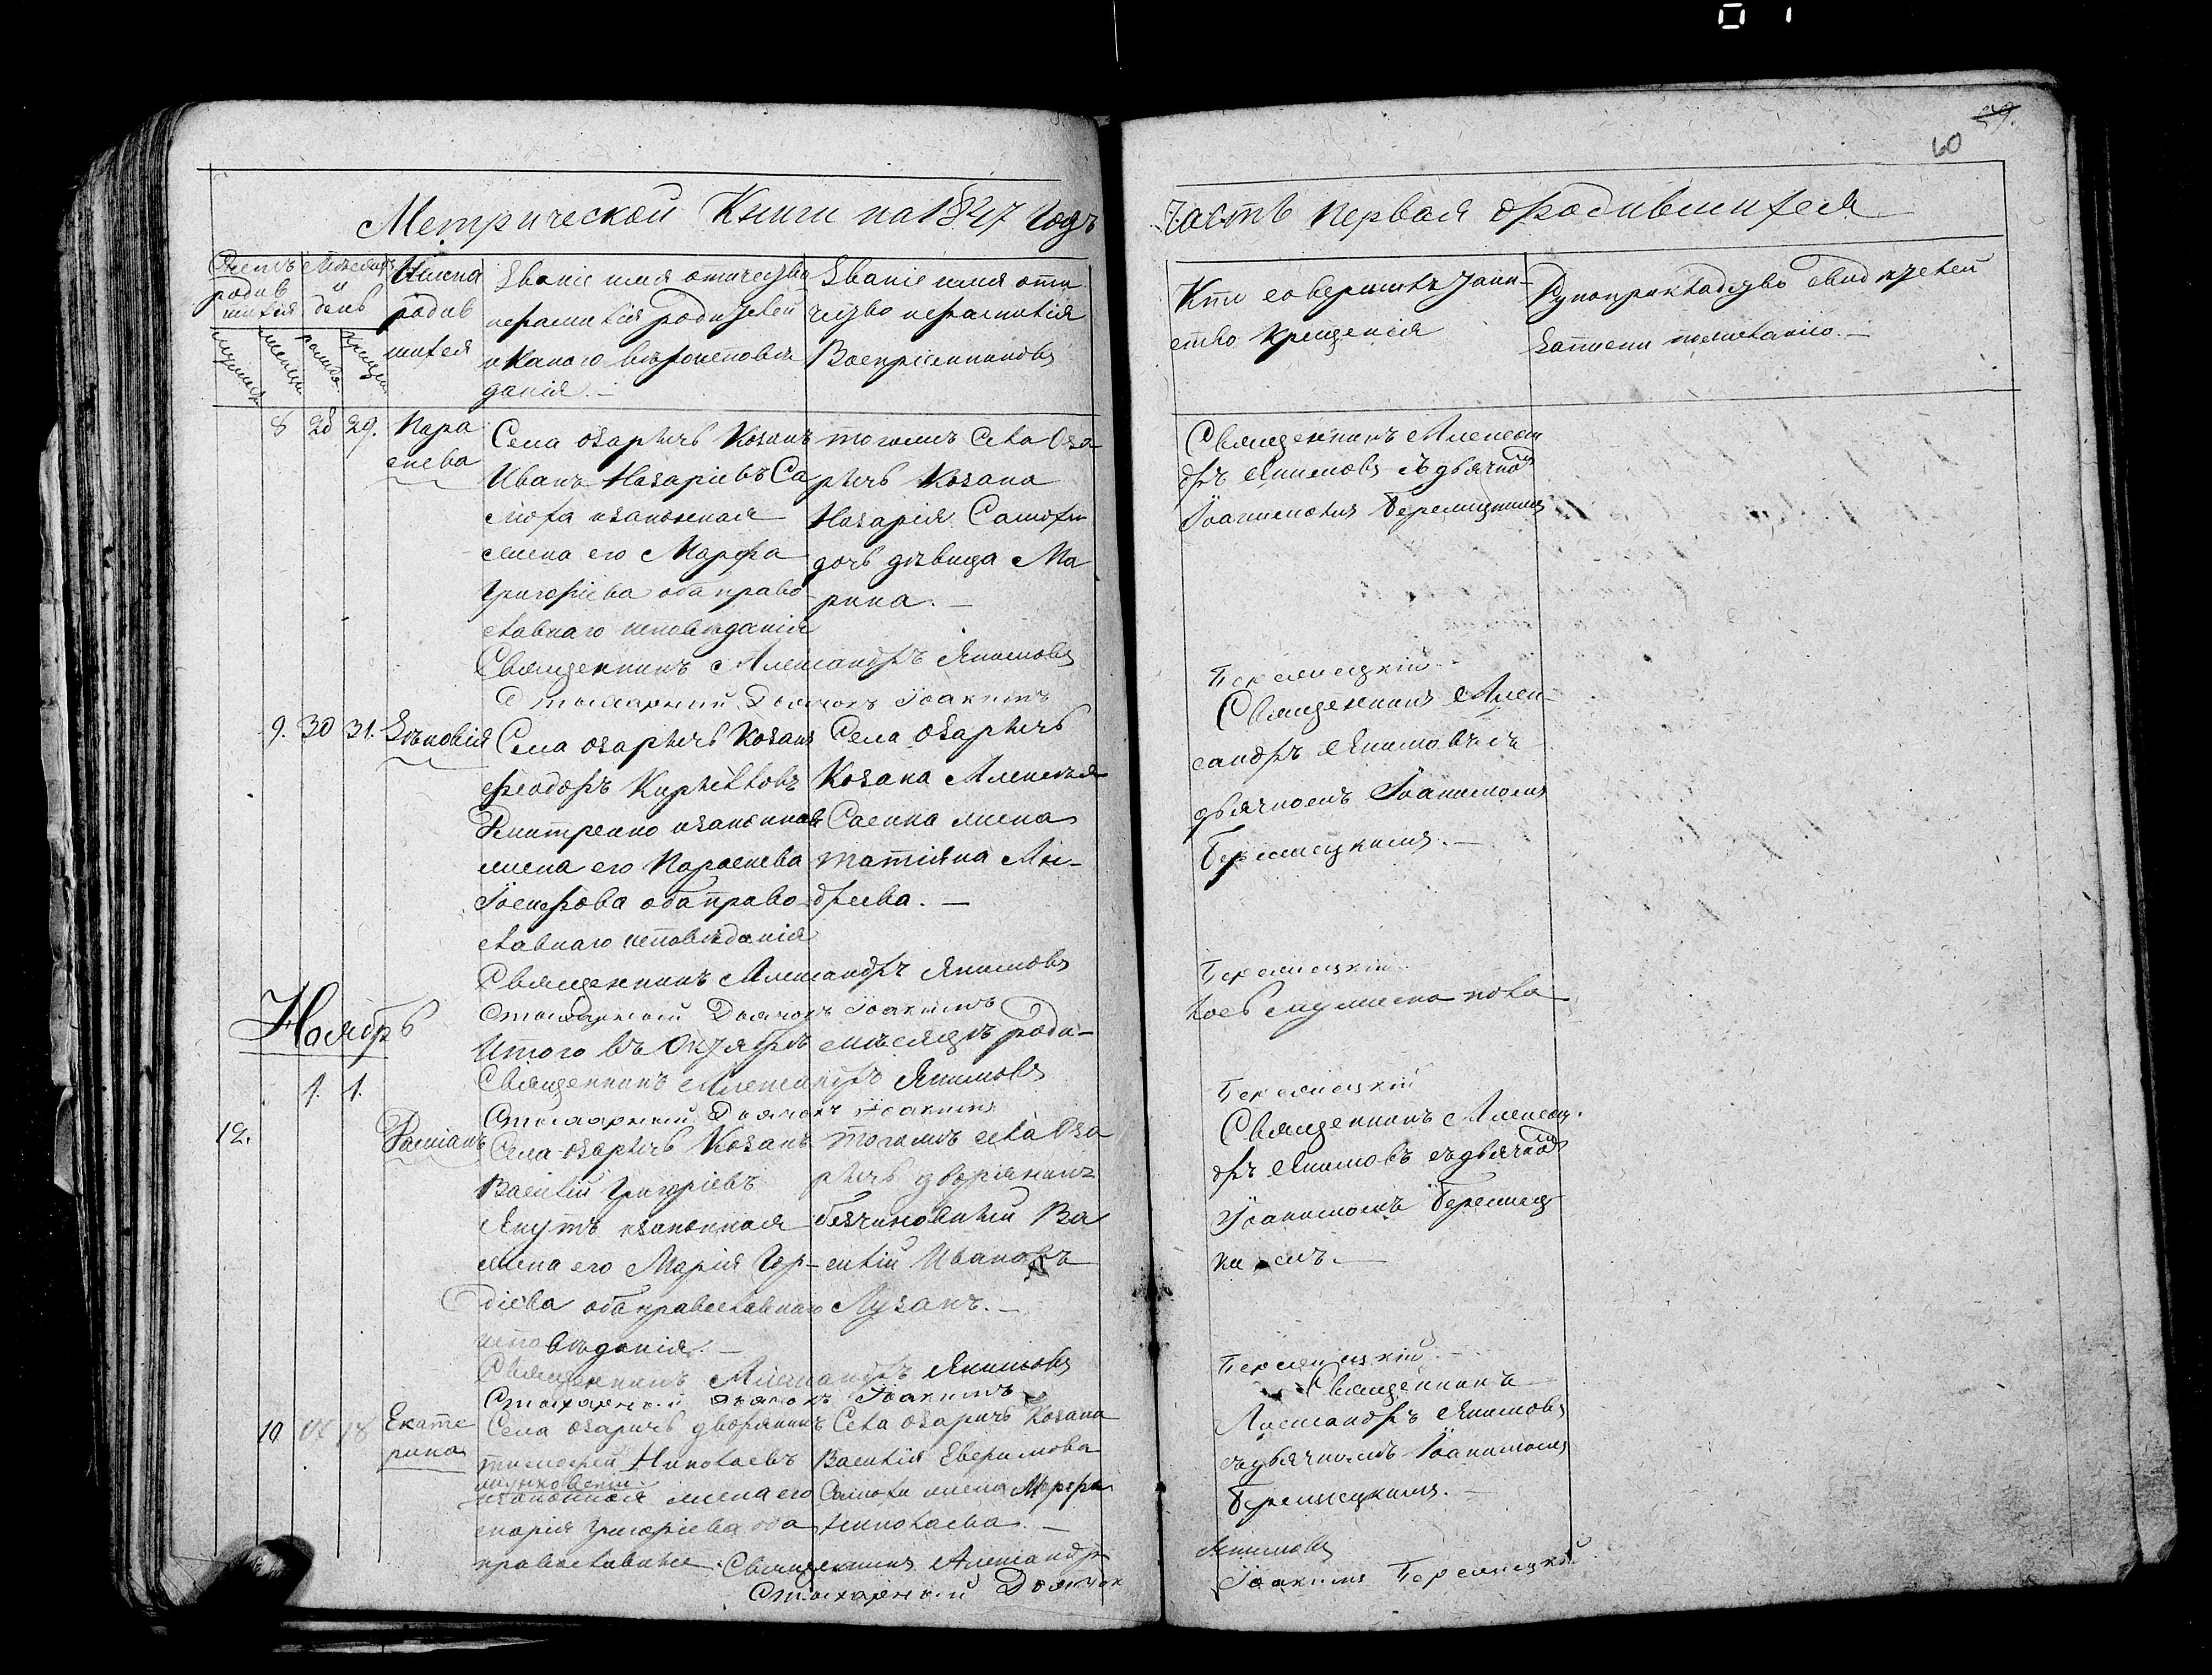 60
59.
Метрической Книги на 1847 Годъ
часть первая о родившихся
Счетъ родив шихся
Мѣсяцъ и день
Имена родив шихся
Званіе имя отчество
и фамилія родителей
и какого вѣроисповѣ
данія. —
Званіе имя отче
чество и фамилія
Воспріемниковъ
Кто совершилъ Таин-
ство Крещенія
Рукоприкладство свидѣтелей
записи по желанію. —
8 28 29. Пара
скева
Села Озаричъ Козакъ
Иванъ Назаріевъ Са
моха и законная
жена его Марфа
Григоріева оба право
славнаго исповѣданія
тогожъ села Оза
ричъ Козака
Назарія Самохи
дочь дѣвица Ма
рина. —
Священникъ Алексан
дръ Якимовъ съ дьячкомъ
Іоакимомъ
Священникъ Александръ Якимовъ
Стихарный Дьячокъ Іоакимъ
9. 30 31. Зѣновія
Села Озаричъ Козакъ
Феодоръ Кирилловъ
и законная
жена его Параскева
Іосифова оба право
славнаго исповѣданія
Села Озаричъ
Козака Алексѣя
Саенка жена
Татіяна Ан-
дреева. —
Священникъ Алек-
сандръ Якимовъ съ
дьячкомъ Іоакимомъ
Священникъ Александръ Якимовъ
Стихарный Дьячокъ Іоакимъ
Итого въ Октябрѣ мѣсяцѣ роди-
лось мужеска пола
1. 1.
Священникъ Александръ Якимовъ
Стихарный Дьячокъ Іоакимъ
Ноябрь
12.
Даміанъ
Села Озаричъ Козакъ
Василій Григоріевъ
Якутъ и законная
жена его Марія Гор-
діева оба православнаго
исповѣданія. —
тогожъ села Оза
ричъ дворянинъ
безчиновный Ва
силій Ивановъ
Лузанъ. —
Священникъ Алексан
дръ Якимовъ съ дьячкомъ
Іоакимомъ
Священникъ Александръ Якимовъ
Стихарный Дьячокъ Іоакимъ
10 18 Екате
рина
Села Озаричъ дворянинъ
Тимофей Николаевъ
законная жена его
Марія Григоріева оба
православные
Села Озаричъ Козака
Василія Евфимова
Самохи жена Марфа
Николаева. —
Священникъ
Александръ Якимовъ
съ дьячкомъ Іоакимомъ
Священникъ Александръ
Якимовъ
Стихарный Дьячок
Іоакимъ